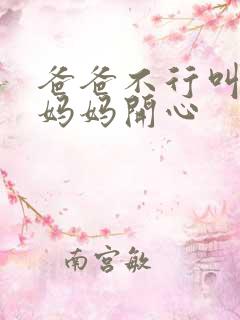 爸爸不行叫
妈妈開心
南宫敏